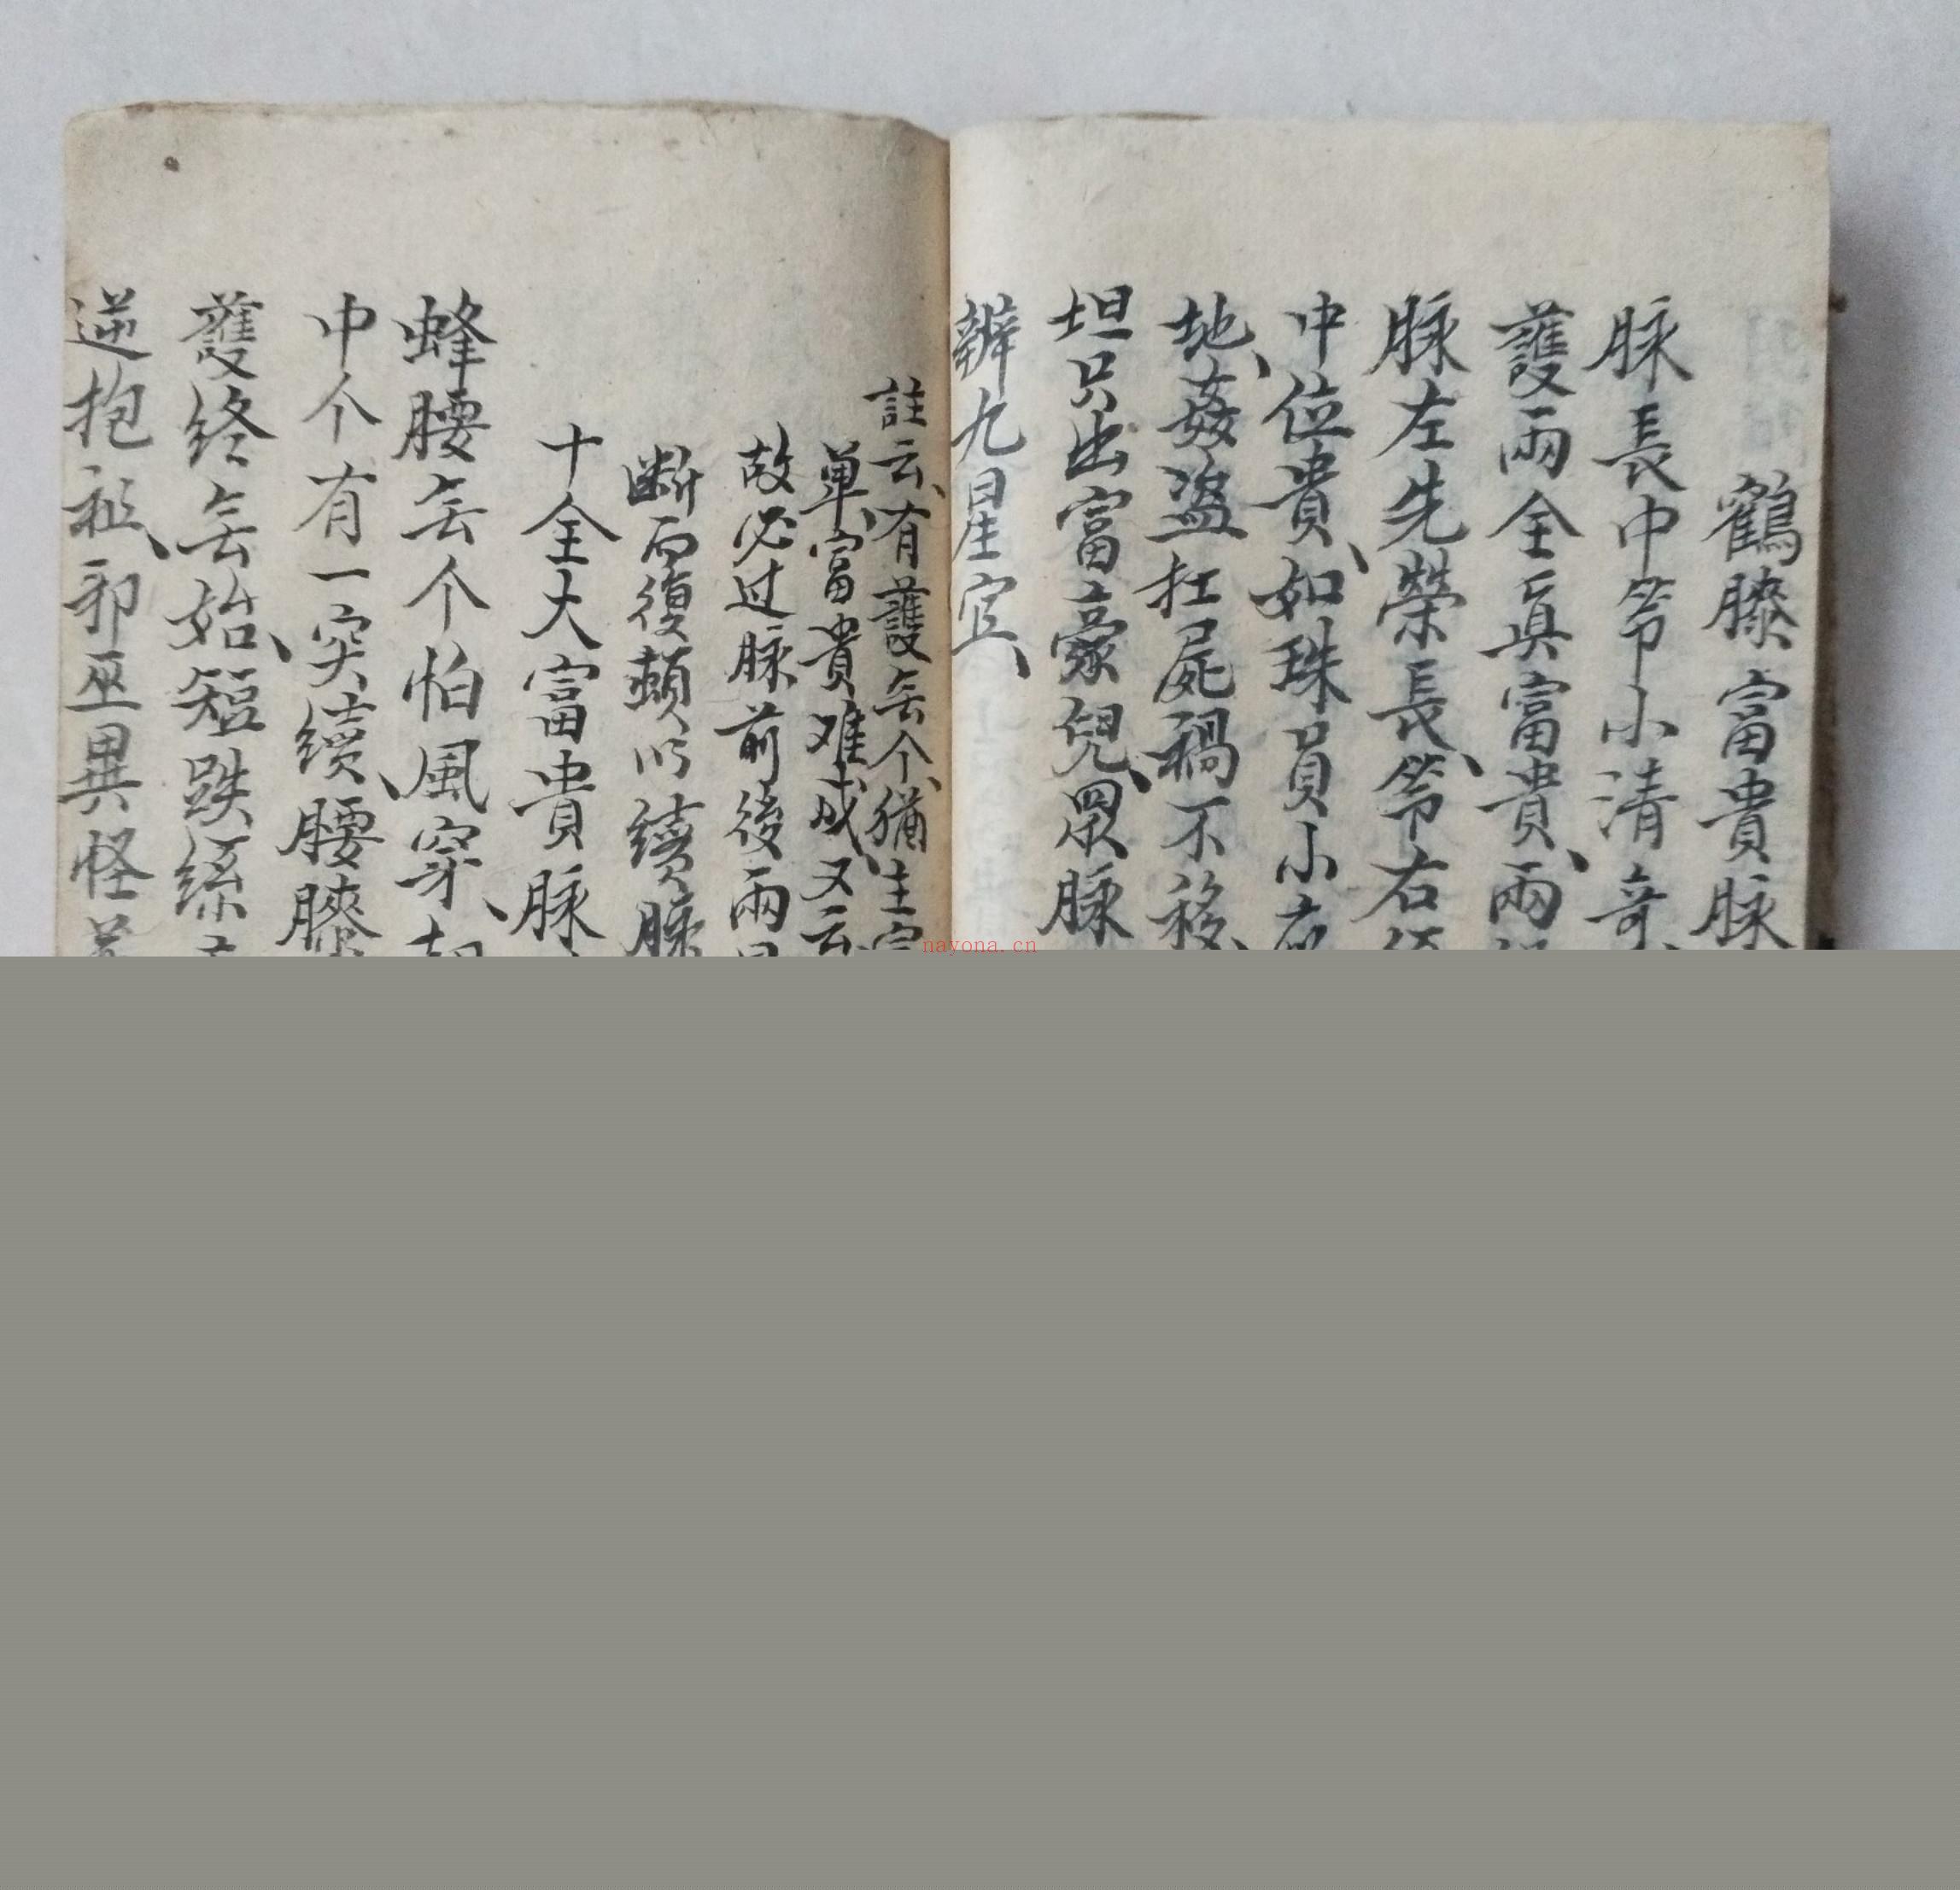 鶴膝富貴脉
脉長中箬小清奇
護兩全眞富貴、兩
脉左先榮長、箬右
中位貴、如珠員小
地、姦盗扛屍禍不移、
坦只出富豪兒、眾脉
辦九星宜、
註云、有護無个、猶主
單、富貴难成、又云
故必过脉前後兩
断而復頼以續脉
十全大富貴脉
蜂腰無个怕風穿、
中个有一突續、腰膝
護終無始、短跌
逆抱祖、邪巫異怪
nayona.cn